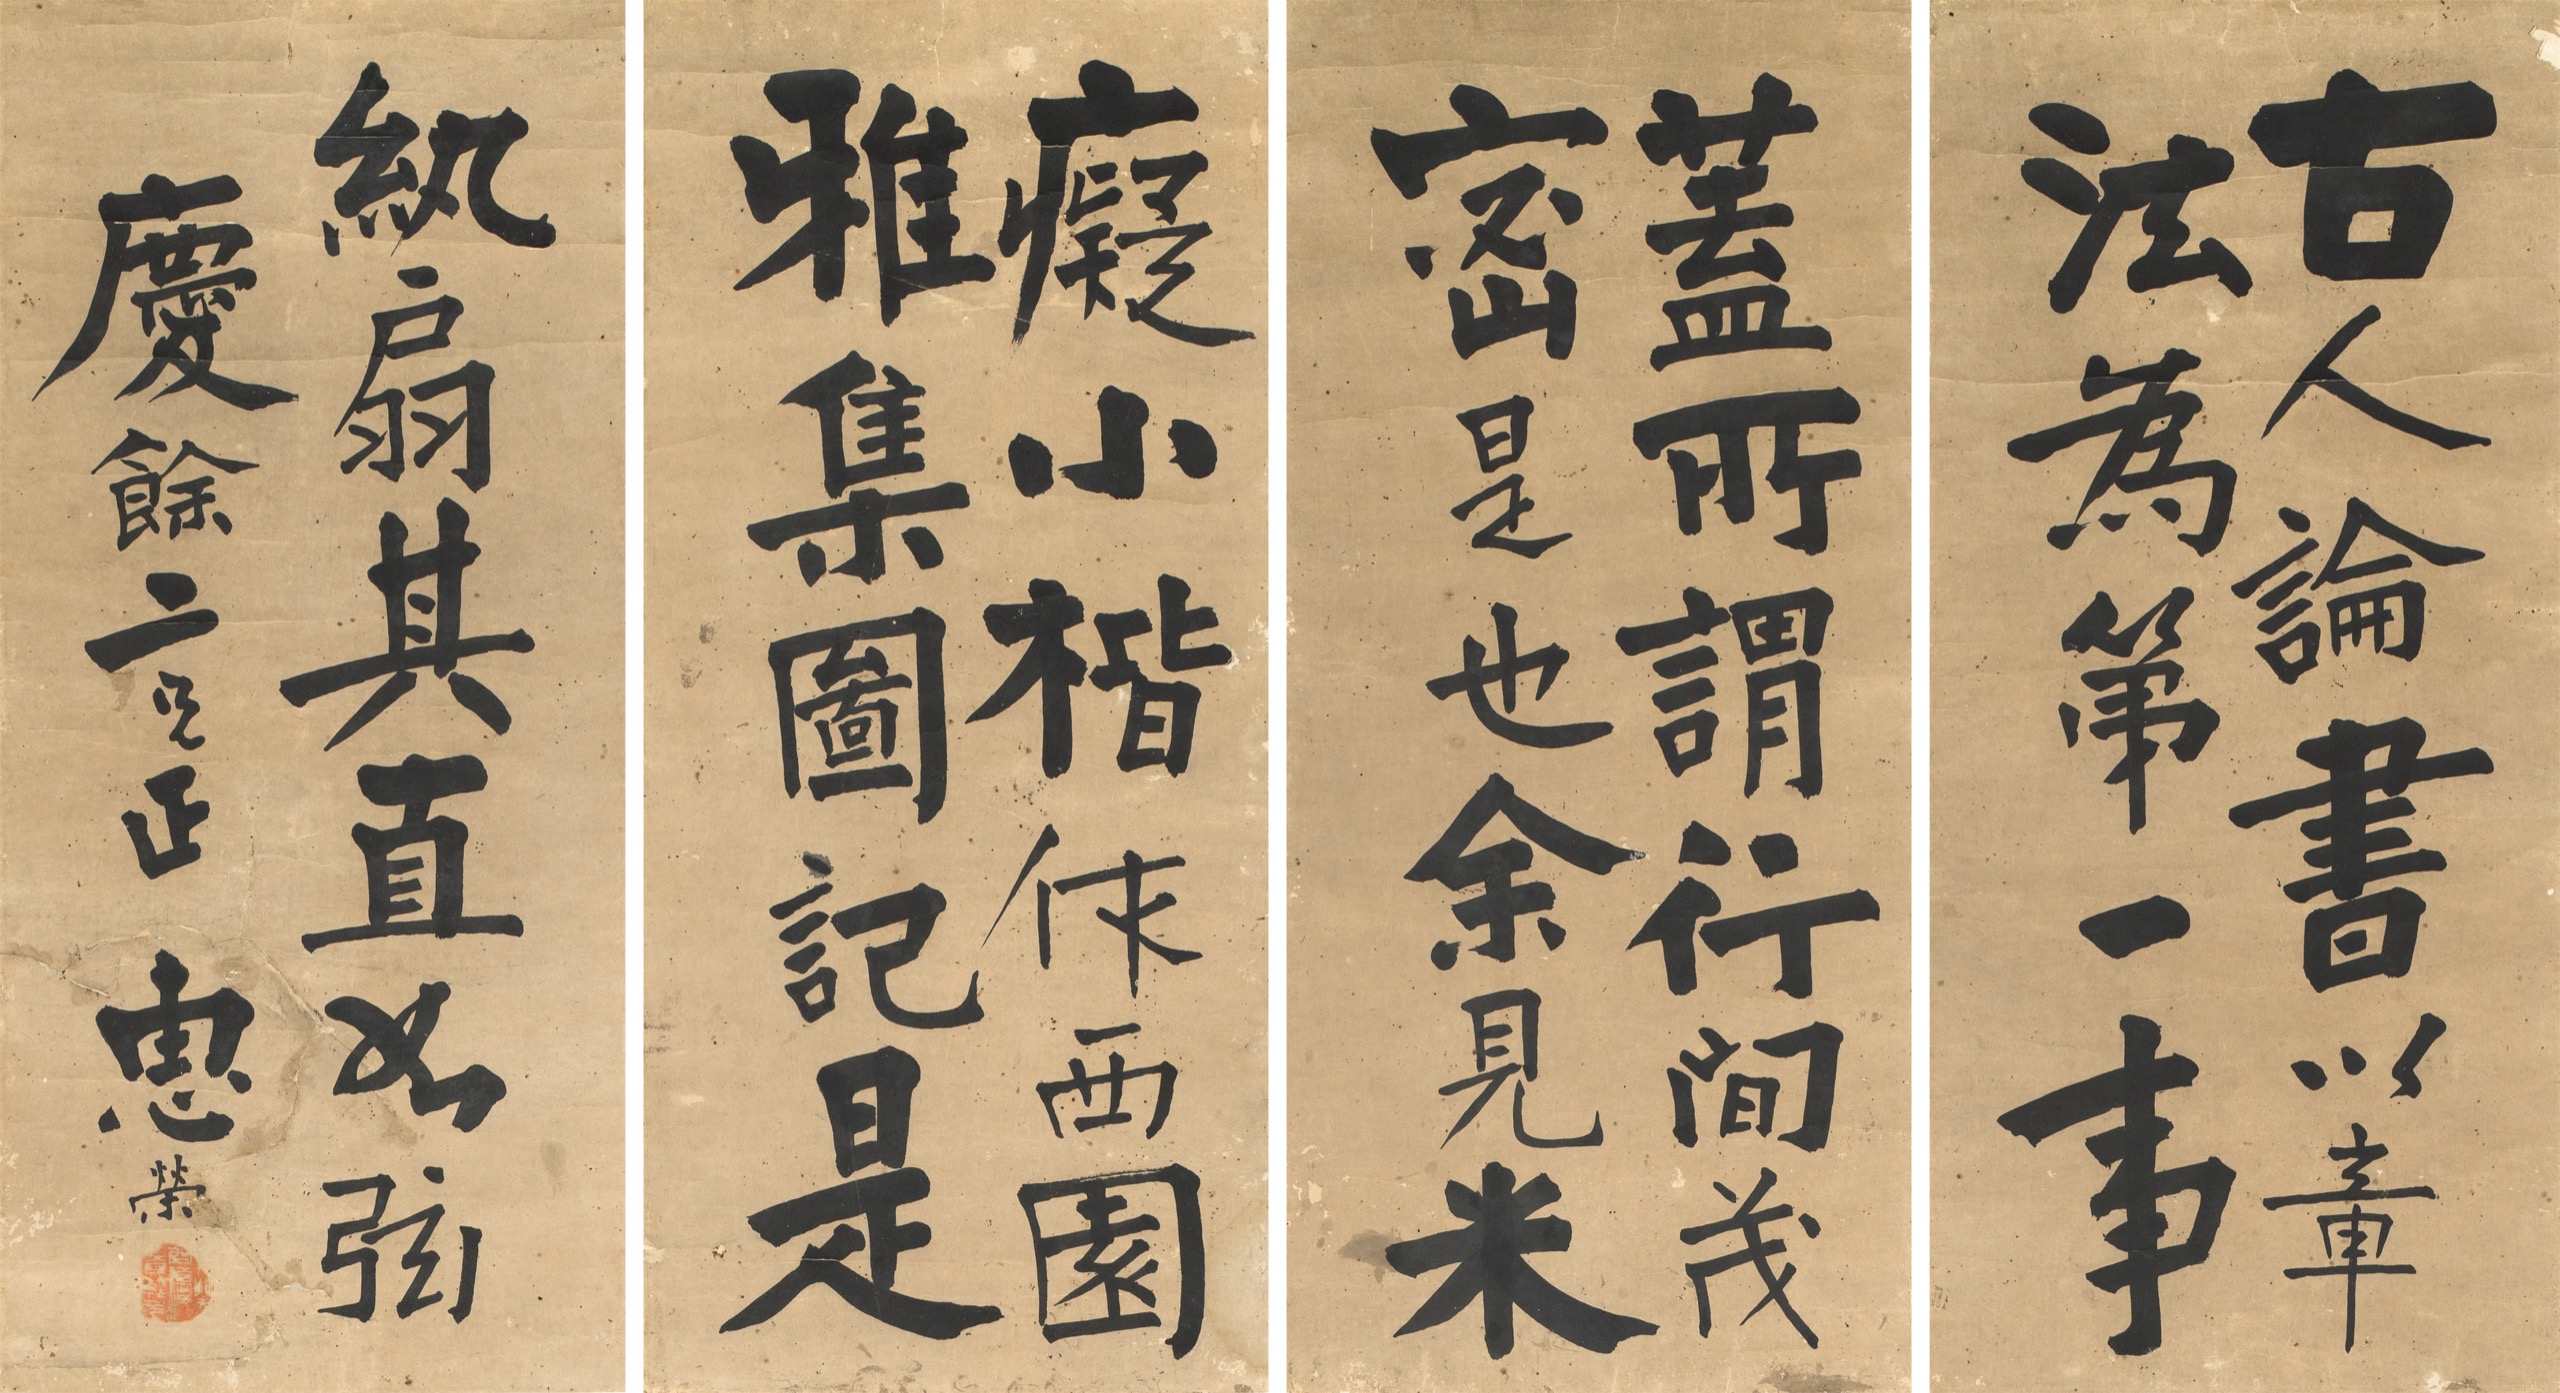 古人論書以章
法為第一事
蓋所謂行間茂
密是也余見米
癡小楷作西園
雅集圖記是
紈扇其直如弦
慶餘二兄正 惠榮